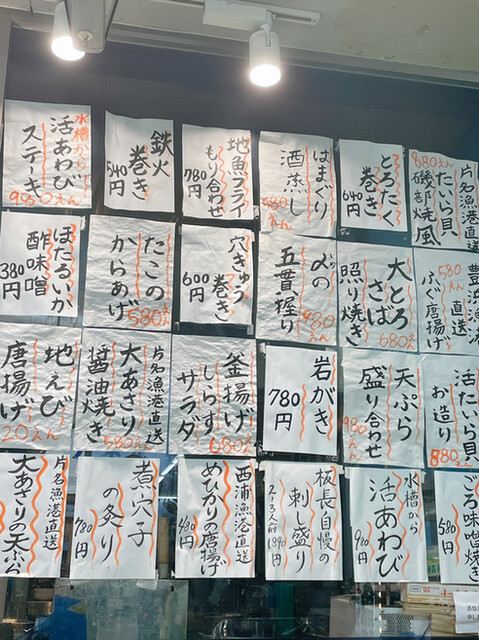 水槽から
活あわび
ステーキ
980えん
鉄火
巻き
540円
地魚フライ
もり合わせ
780円
はまぐり
酒蒸し
580えん
とろたく
巻き
640円
片名漁港直送
たいら貝
磯部焼風
880えん
ほたるいか
酢味噌
380円
たこの
からあげ
580えん
穴きゅう
巻き
600円
〆の
五貫握り
980えん
大とろ
さば
照り焼き
680えん
豊浜漁港
直送
ふぐ唐揚げ
580えん
地えび
唐揚げ
20えん
片名漁港直送
大あさり
醤油焼き
580えん
釜揚げ
しらす
サラダ
680えん
岩がき
780円
天ぷら
盛り合わせ
980えん
活たいら貝
お造り
880えん
片名漁港直送
大あさりの天ぷら
煮穴子
の炙り
780円
西浦漁港直送
めひかりの唐揚げ
480円
板長自慢の
刺し盛り
2〜3人前1890円
水槽から
活あわび
980円
ごろ味噌焼き
580円